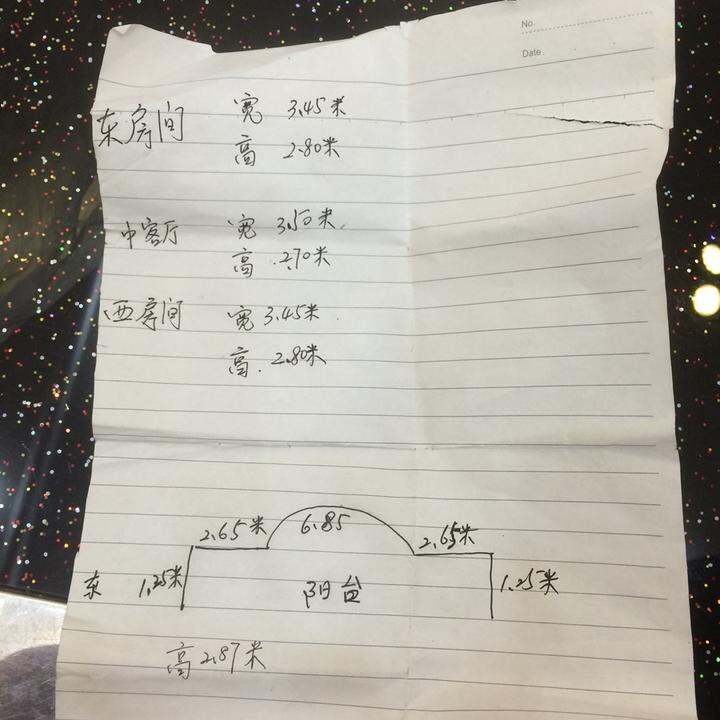 No.
Date
东房间 宽 3.45米
高 2.80米
中客厅 宽 3.50米
高 2.70米
西房间 宽 3.45米
高 2.80米
2.65米 6.85 2.65米
东 1.25米 阳台 1.25米
高 2.87米